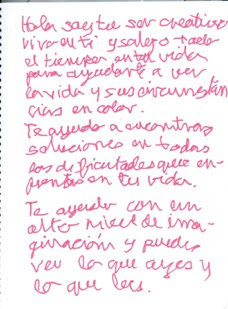 Hola soy tu ser creativo
vivo en ti y salgo todo
el tiempo en tu vida
para ayudarte a ver
la vida y sus circunstan
cias en color.
Te ayudo a encontrar
soluciones en todas
las dificultades que en
frentas en tu vida.
Te ayudo con un
alto nivel de ima
ginación y puedes
ver lo que oyes y
lo que lees.